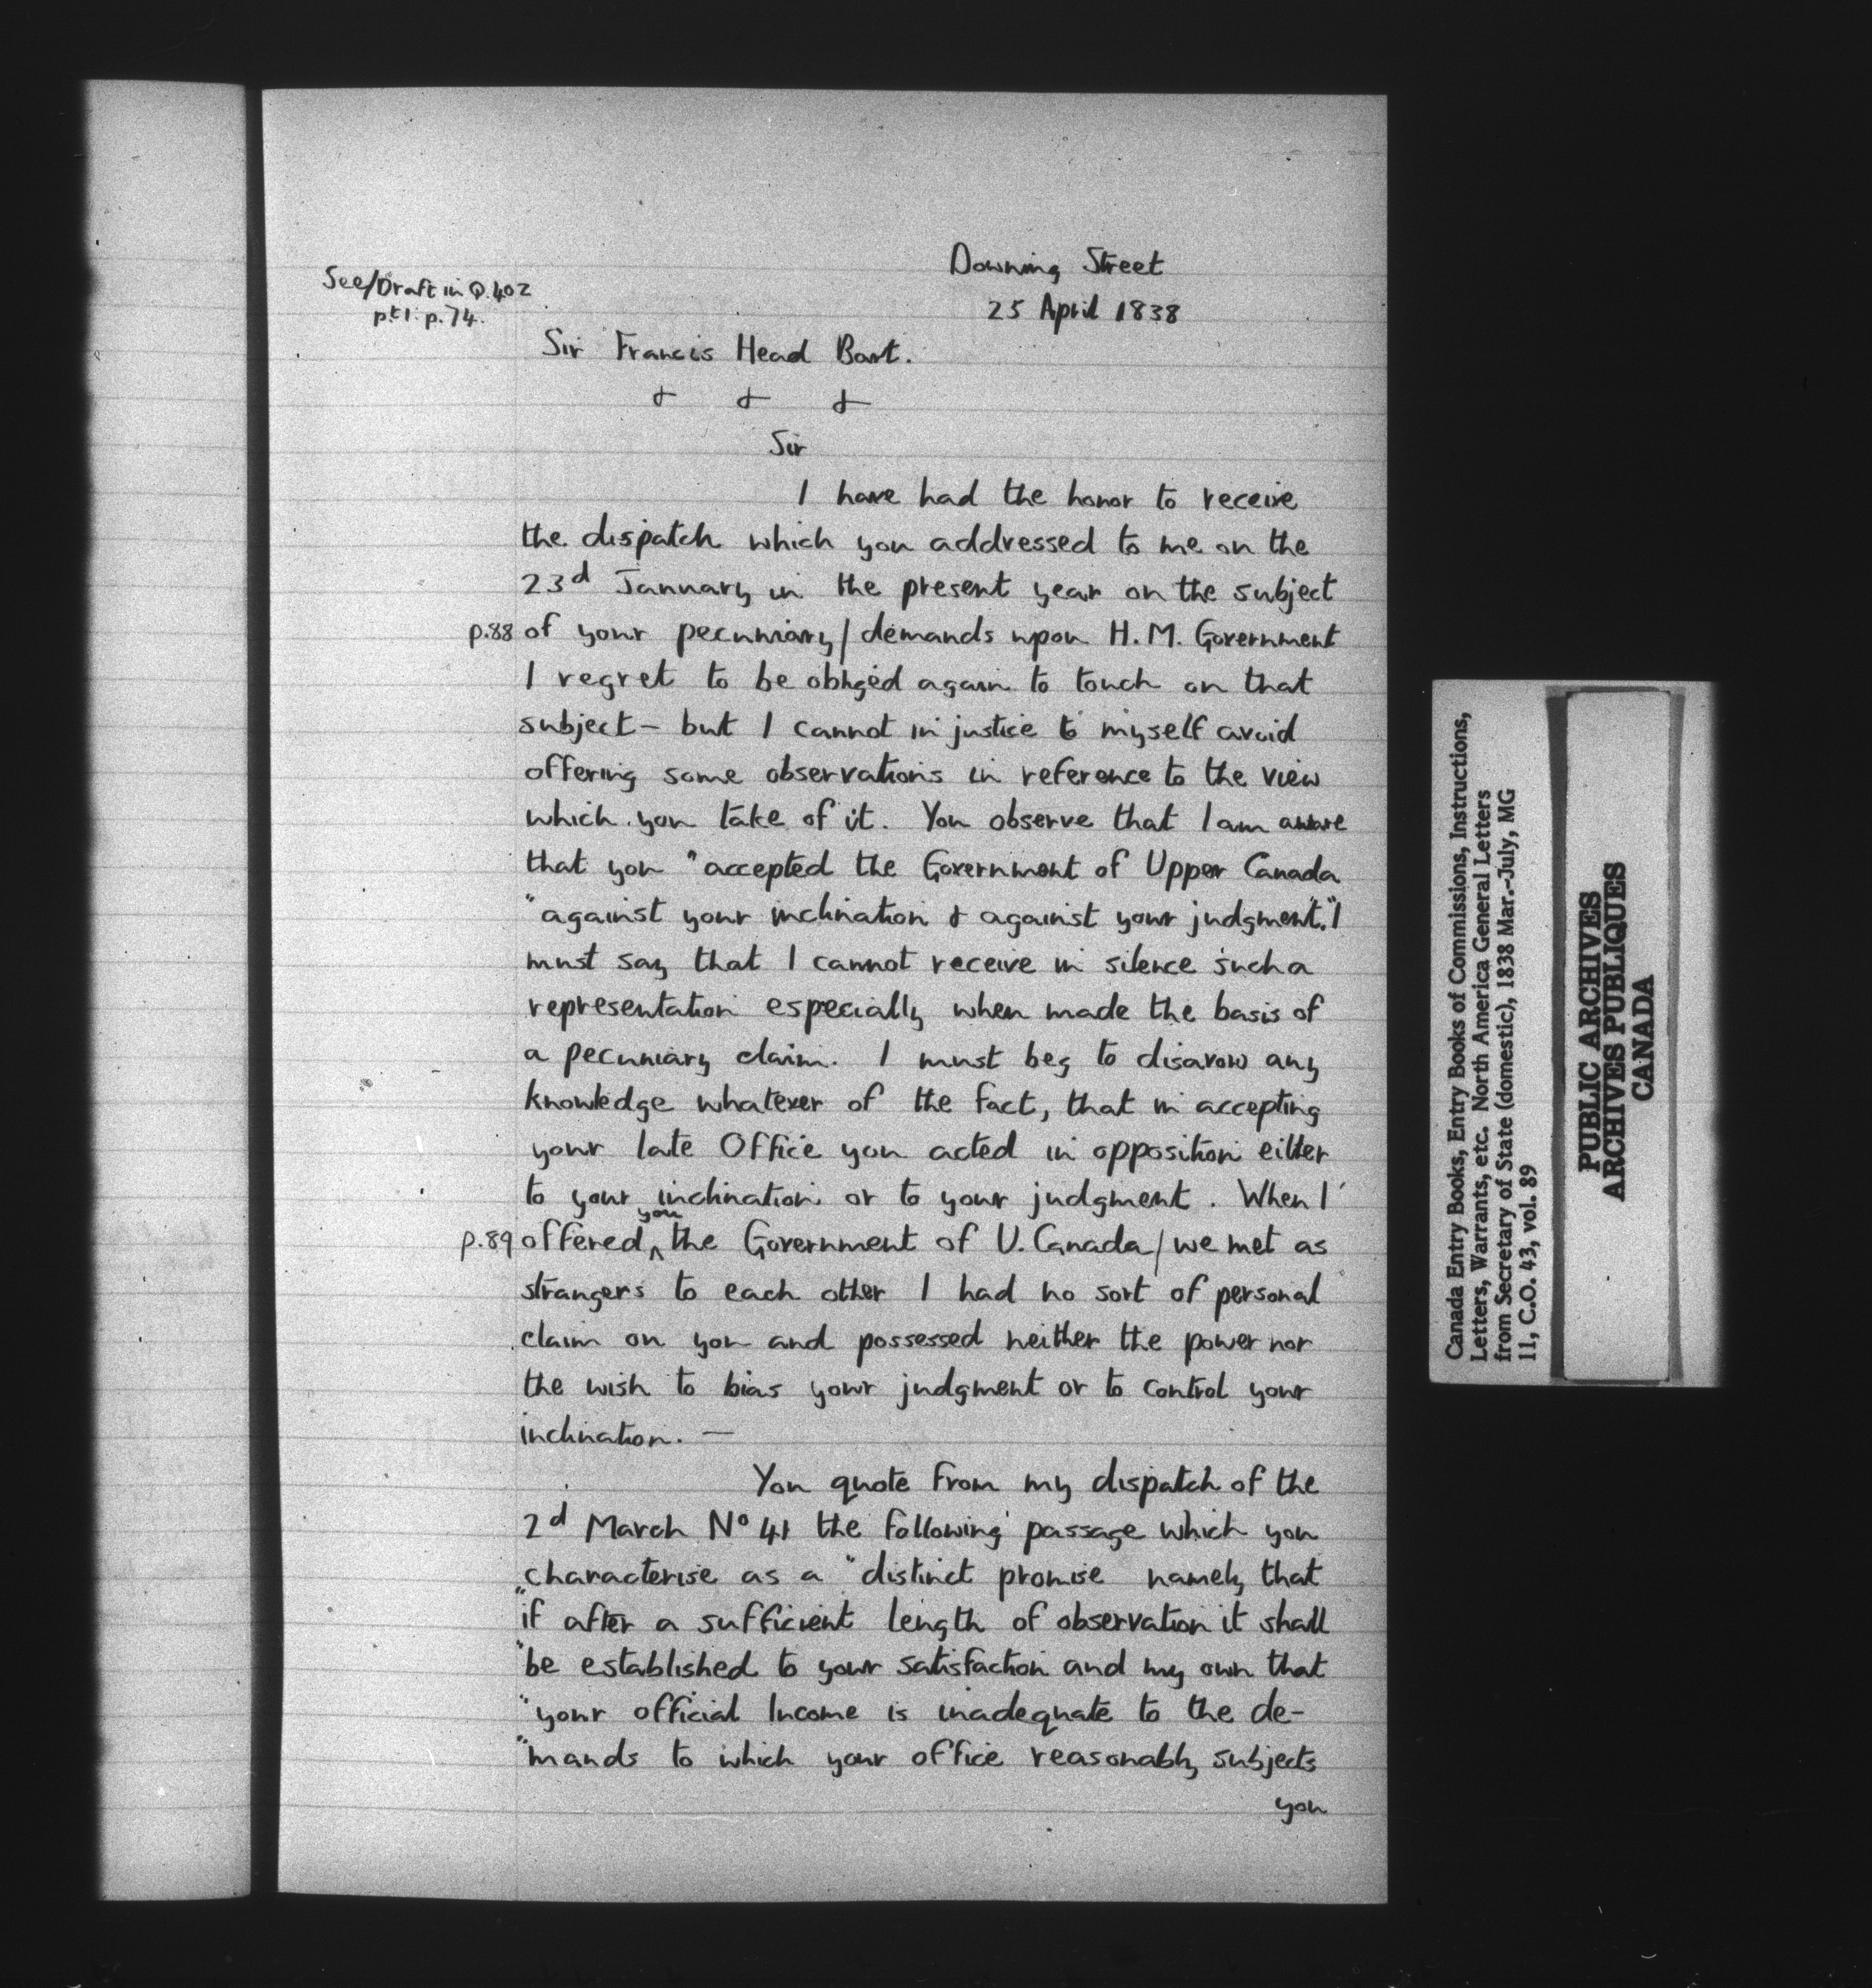 See/Draft in Q.402
pt 1. p. 74.
Downing Street
25 April 1838
Sir Francis Head Bart.
& & &
Sir
I have had the honor to receive
the dispatch which you addressed to me on the
23d January in the present year on the subject
p.88 of your pecuniary/demands upon H.M. Government
I regret to be obliged again to touch on that
subject – but I cannot in justice to myself avoid
offering some observations in reference to the view
which you take of it. You observe that I am aware
that you "accepted the Government of Upper Canada
"against your inclination & against your judgment." I
must say that I cannot receive in silence such a
representation especially when made the basis of
a pecuniary claim. I must beg to disavow any
knowledge whatever of the fact, that in accepting
your late Office you acted in opposition either
to your inclination or to your judgment. When I
p.89 offered you the Government of U. Canada/we met as
strangers to each other I had no sort of personal
claim on you and possessed neither the power nor
the wish to bias your judgment or to control your
inclination. —
You quote from my dispatch of the
2d March No 41 the following passage which you
characterise as a "distinct promise namely that
"if after a sufficient length of observation it shall
"be established to your satisfaction and my own that
"your official Income is inadequate to the de-
"mands to which your office reasonably subjects
you
Canada Entry Books, Entry Books of Commissions, Instructions,
Letters, Warrants, etc. North America General Letters
from Secretary of State (domestic), 1838 Mar.-July, MG
11, C.O. 43, vol. 89
PUBLIC ARCHIVES
ARCHIVES PUBLIQUES
CANADA